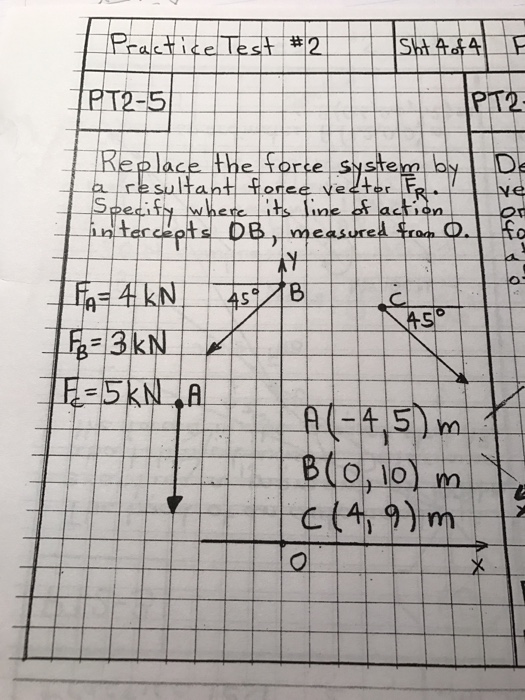 Practice Test #2
Sht 4 of 4
PT2-5
PT2-
Replace the force system by
a resultant force vector FR.
Specify where its line of action
intercepts OB, measured from O.
De
ve
of
fo
Y
FA = 4 kN
45°
B
C
45°
FB = 3 kN
FC = 5 kN
A
A(-4, 5) m
B(0, 10) m
C(4, 9) m
O
X